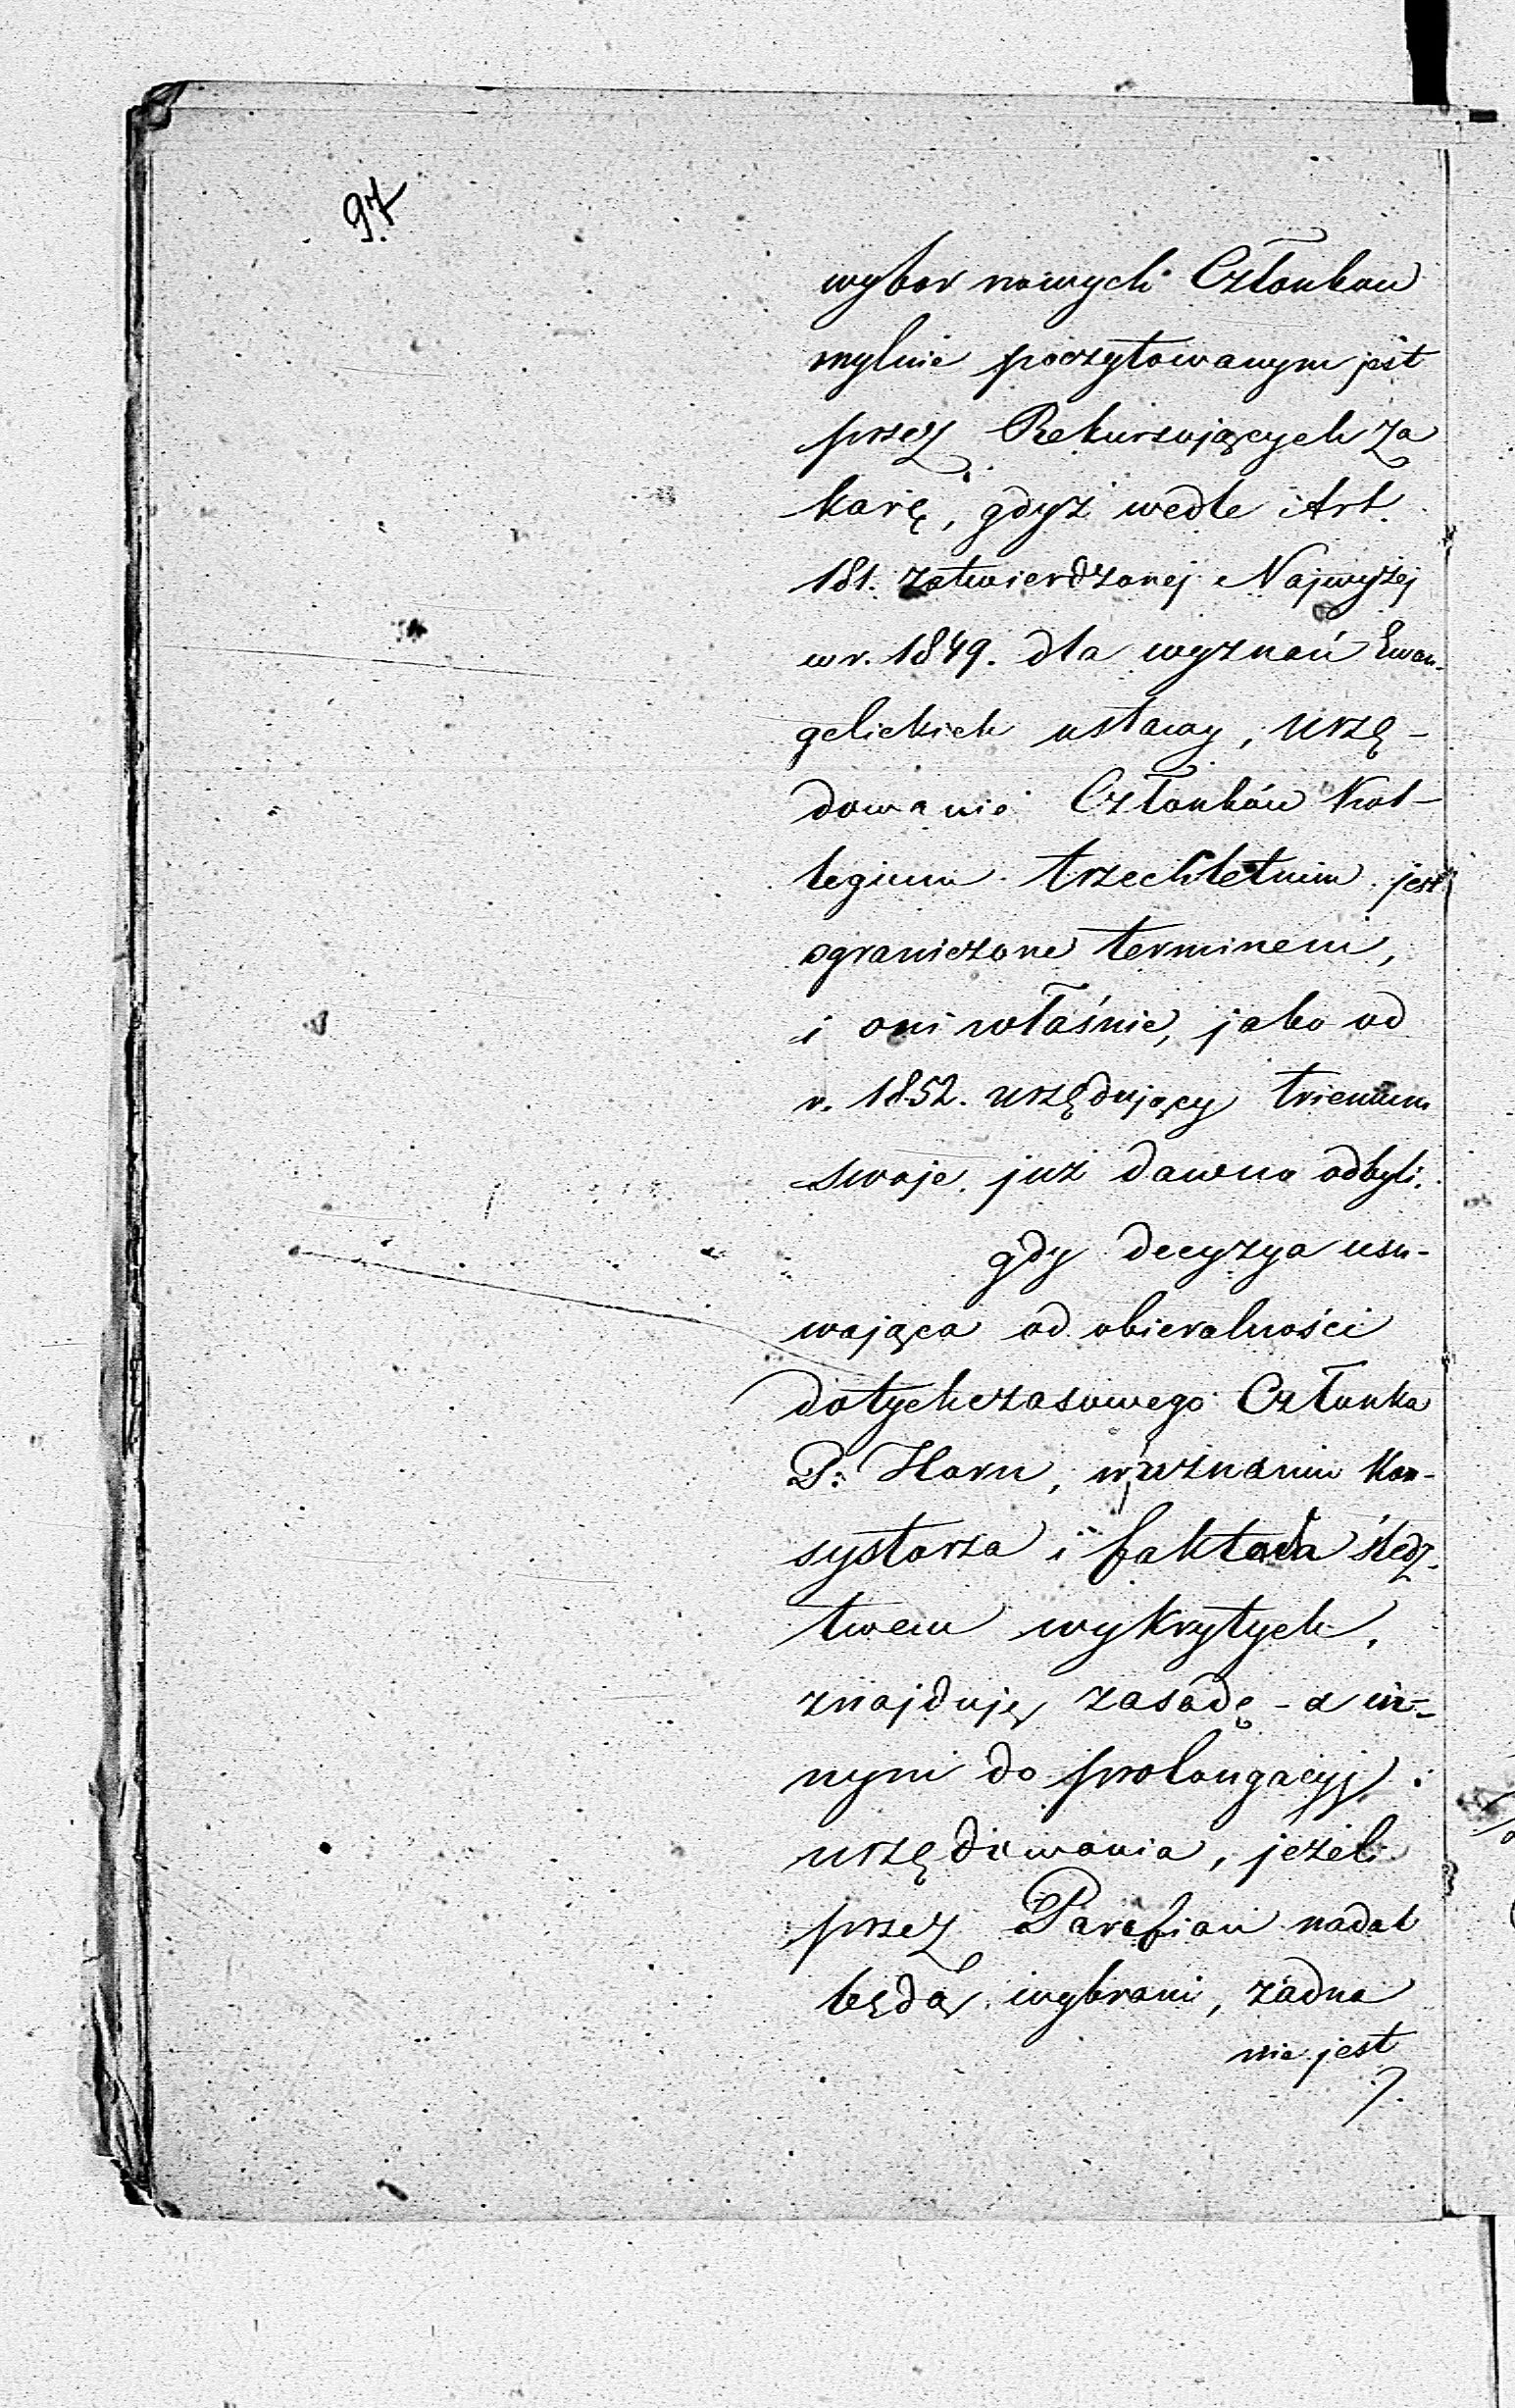 97
wybor nowych Członkow
mylnie poczytowanym jest
przez Rekursujących za
karę, gdyż wedle Art.
181. zatwierdzonej Najwyżej
w r. 1849. dla wyznań Ewan-
gelickich ustawy, urzę-
dowanie Członków Kol-
legium trzechletnim jest
ograniczone terminem,
i oni właśnie, jako od
r. 1852. urzędujący trienium
swoje już dawno odbyli.
gdy decyzya usu-
wająca od obieralności
dotychczasowego Członka
P. Horn, w uznaniu Kon-
systorza i faktach śledz-
twem wykrytych,
znajduję zasadę - a in-
nym do prolongacyj
urzędowania, jeżeli
przez Parafian nadal
będą wybrani, żadna
nie jest